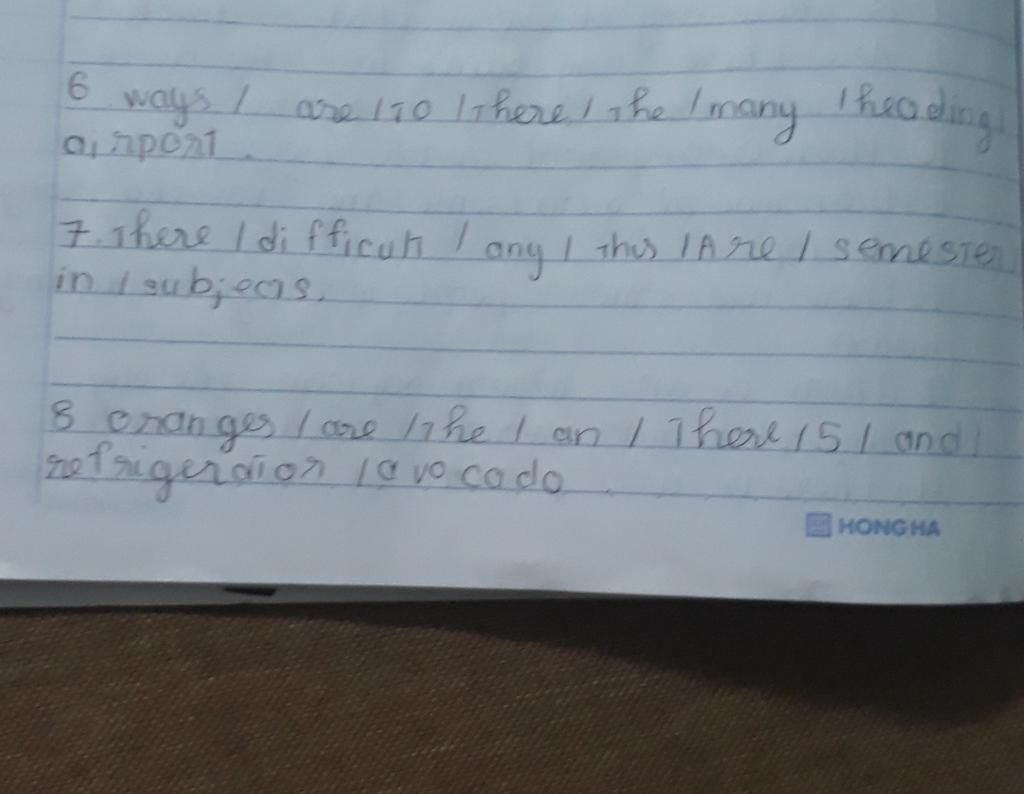 6 ways / are / To / There / The / many / heading /
airport.
7. There / difficult / any / this / Are / semester
in / subjects.
8 oranges / are / The / an / There / 5 / and /
refrigeration / avocado.
HONG HA